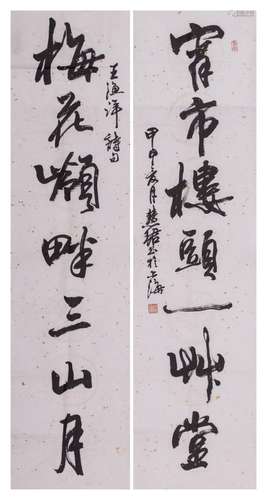 宵市樓頭一艸堂
甲申月慧珺書於上海
梅花嶺畔三山月
王漁洋詩句